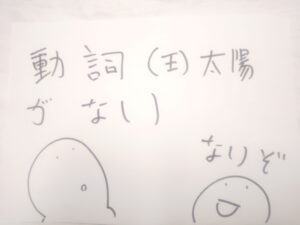 動詞(王)太陽
がない
ないぞ